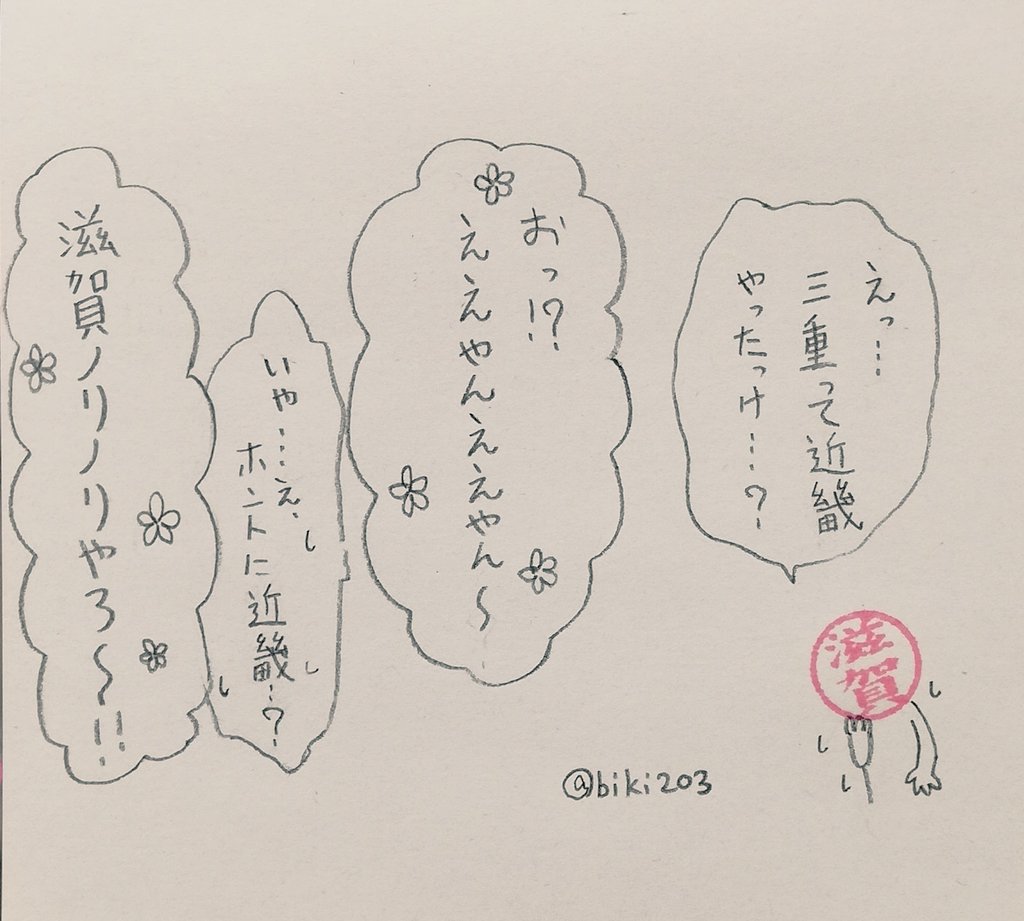 えっ…
三重って近畿
やったっけ…?
おっ!?
ええやんええやん〜
いや…え、
ホントに近畿…?
滋賀ノリノリやろ〜!!
滋賀
@biki203